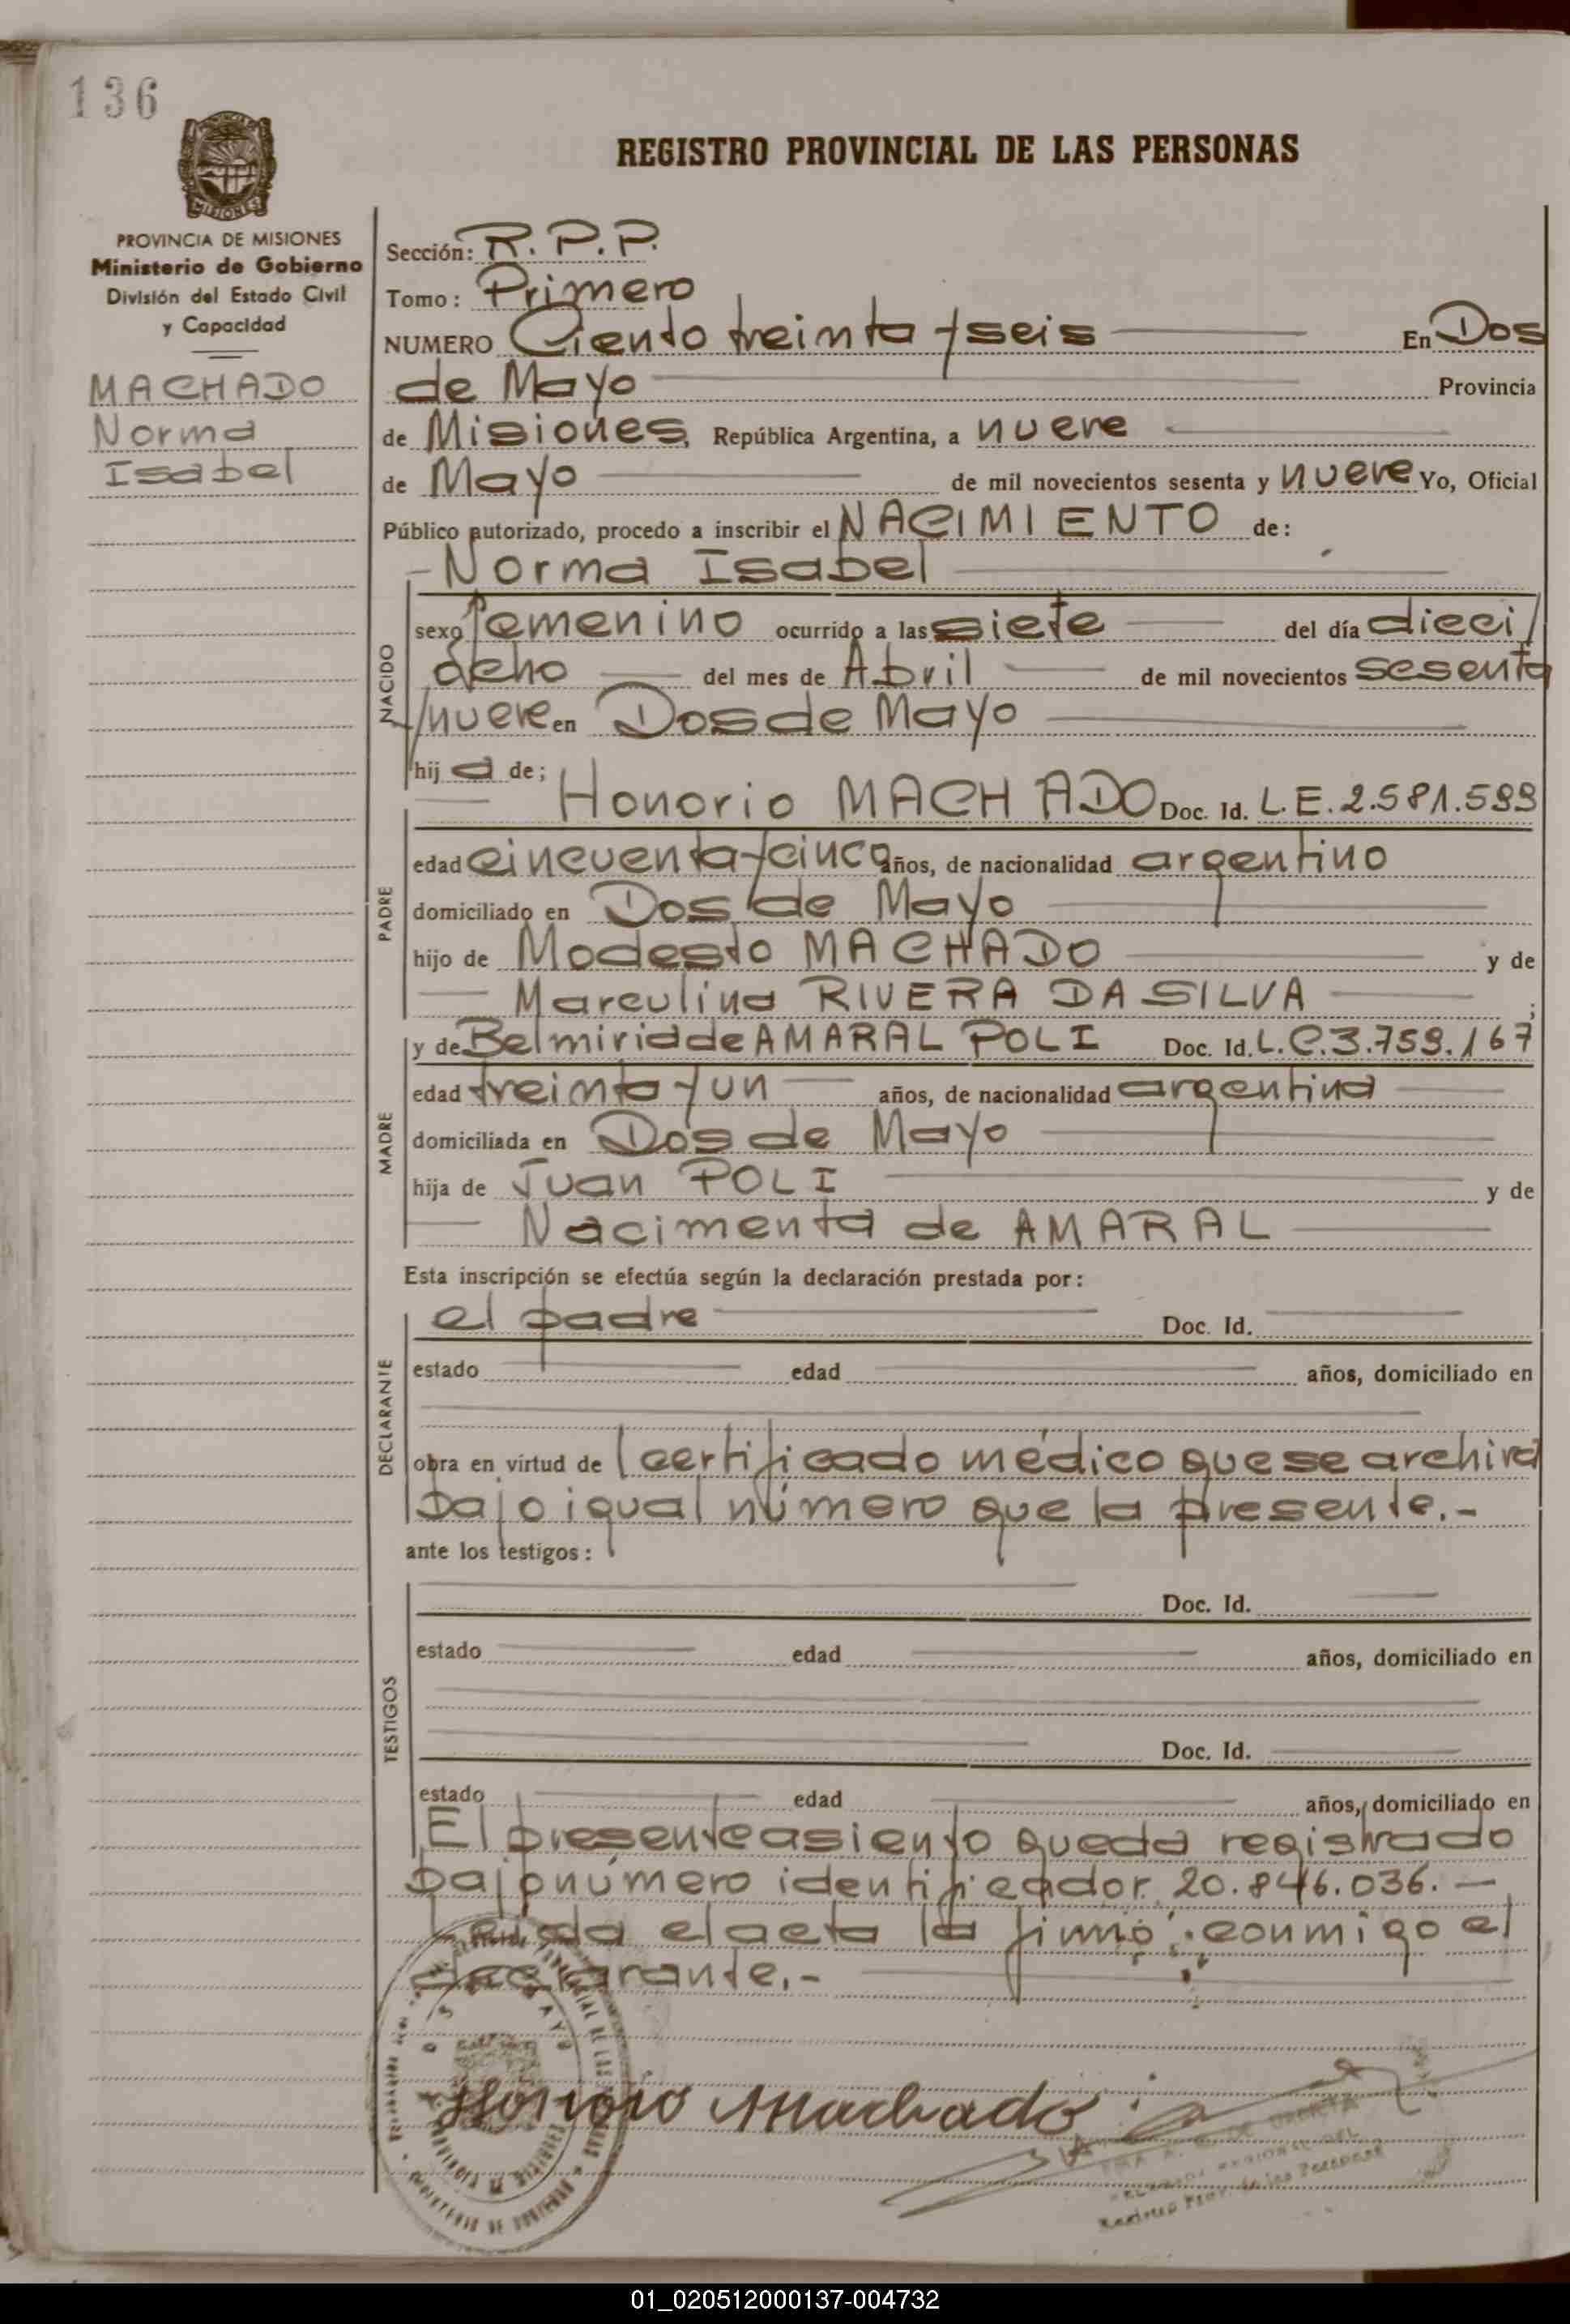 136
REGISTRO PROVINCIAL DE LAS PERSONAS
MISIONES
PROVINCIA DE MISIONES
Ministerio de Gobierno
División del Estado Civil
y Capacidad
MACHADO
Norma
Isabel
Sección: R.P.P.
Tomo: Primero
NUMERO Ciento treinta y seis En Dos
de Mayo Provincia
de Misiones, República Argentina, a nueve
de Mayo de mil novecientos sesenta y nueve Yo, Oficial
Público autorizado, procedo a inscribir el NACIMIENTO de:
Norma Isabel
NACIDO
sexo femenino ocurrido a las siete del día dieci/
ocho del mes de Abril de mil novecientos sesenta
y nueve en Dos de Mayo
hija de;
Honorio MACHADO Doc. Id. L.E. 2.581.599
PADRE
edad cincuenta y cinco años, de nacionalidad argentino
domiciliado en Dos de Mayo
hijo de Modesto MACHADO y de
Marculina RIVERA DA SILVA ;
y de Belmiria de AMARAL POLI Doc. Id. L.C. 3.759.167
MADRE
edad treinta y un años, de nacionalidad argentina
domiciliada en Dos de Mayo
hija de Juan POLI y de
Nacimenta de AMARAL
Esta inscripción se efectúa según la declaración prestada por:
el padre Doc. Id.
DECLARANTE
estado edad años, domiciliado en
obra en virtud de certificado médico que se archiva
bajo igual número que la presente.-
ante los testigos:
Doc. Id.
estado edad años, domiciliado en
TESTIGOS
Doc. Id.
estado edad años, domiciliado en
El presente asiento queda registrado
bajo número identificador 20.846.036.-
Leida el acta la firmó conmigo el
declarante.-
Honorio Machado
01_020512000137-004732